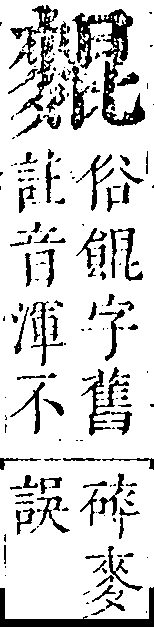 䴷
俗餛字舊
註音渾不
碎麥
誤